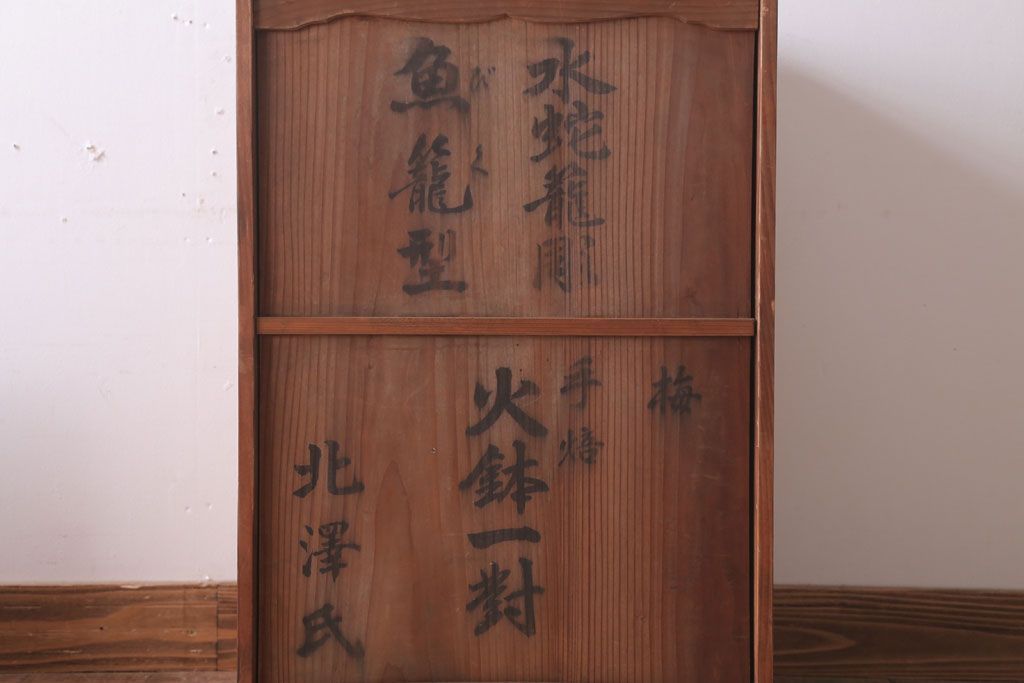 水蛇籠彫
びく
魚籠型
梅
手焙
火鉢一對
北澤氏